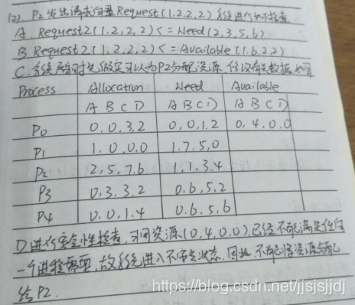 (2) P2发出请求向量Request(1.2.2.2)系统进行如下检查
A. Request2(1.2.2.2)<=Need(2,3,5,6)
B Request2(1,2,2,2)<=Available(1.6.2.2)
C.系统暂时先假定可以为P2分配资源,
Process Allocation Need Available
A B C D A B C D A B C D
P0 0,0,3.2 0,0.1.2 0,4,0,0
P1 1.0,0,0 1.7.5,0
P2 2,5,7.6 1,1.3.4
P3 0,3,3.2 0.6,5.2
P4 0,0,1.4 0.6,5,6
D.进行安全性检查,可用资源(0,4,0,0)已经不能满足任何
一个进程需要,故系统进入不安全状态,因此不能将资源分配
给P2.
https://blog.csdn.net/jjsjsjjdj